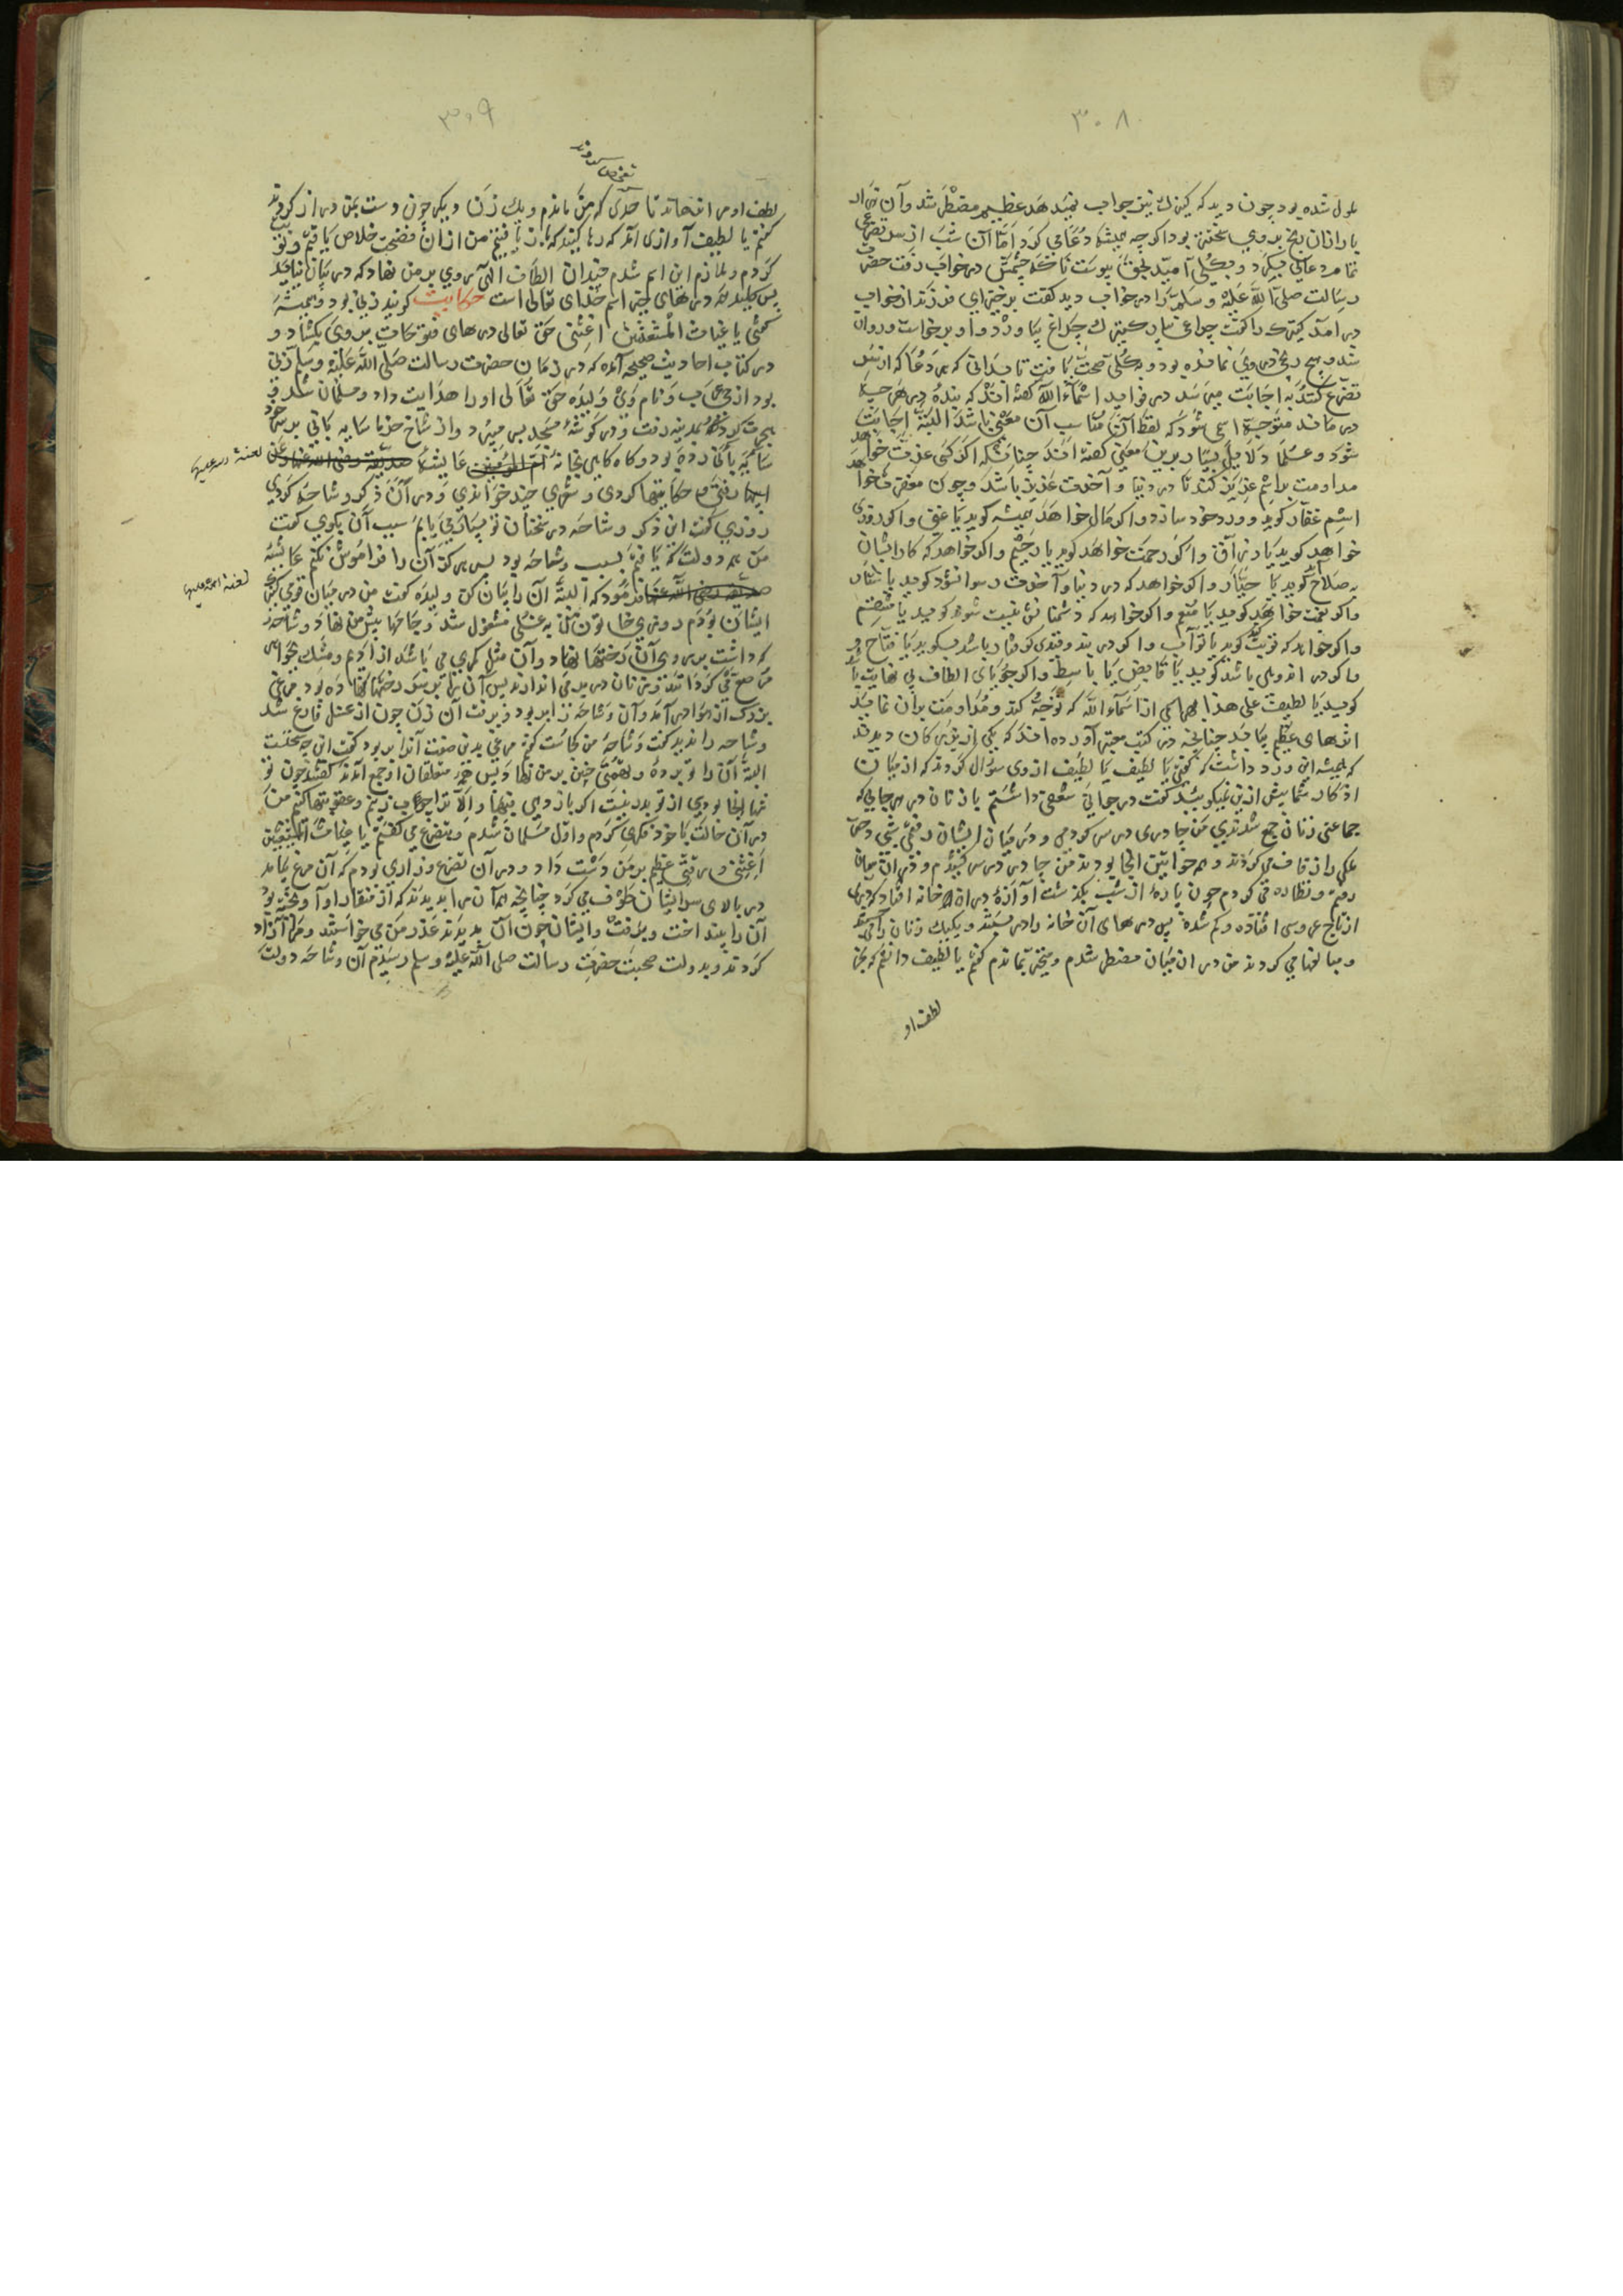 ٣٠٨
ملول شده بود چون دید که کنیزك نیز جواب نمیدهد عظیم مضطر شد وآن
یاران ان رنج بروی سخت بود اکرچه همیشه دعا می کرد اما آن شب از سر تضرع
تمام دعای میکرد و بکلی امید بحق پیوست تا که چشمش در خواب رفت حضرت
رسالت صلی الله علیه وسلم را در خواب دید کفت برخیز ای فرزند از خواب
در آمد کنیزك را کفت چراغ بیار کنیزك چراغ بیاورد و او برخاست و روان
شد و هیچ رنج در وی نمانده بود و بکلی صحت یافت تا بدانی که هر دعا که از سر
تضرع کنند به اجابت میرسد در فواید اسماء الله کفته اند که بنده در هر چه
درماند متوجه اسمی شود که لفظ آن مناسب آن معنی باشد البته اجابت
شود و علما دلایل بسیار برین معنی کفته اند چنانکه اکر کسی عزت خواهد
مداومت بر اسم عزیز کند تا در دنیا و آخرت عزیز باشد و چون مغفرت خواهد
اسم غفار کوید و ورد خود سازد و اکر مال خواهد همیشه کوید یا غنی و اکر روزی
خواهد کوید یا رزاق و اکر رحمت خواهد کوید یا رحیم و اکر خواهد که کار ایشان
به صلاح آید کوید یا جبار و اکر خواهد که در دنیا و آخرت رسوا نشود کوید یا ستار
واکر نعمت خواهد کوید یا منعم واکر خواهد که دشمنانش نیست شوند کوید یا منتقم
واکر خواهد که توبت کند کوید یا تواب و اکر در بند و قیدی کرفتار باشد بکوید یا فتاح و
واکر در اندوهی باشد کوید یا قابض یا باسط واکر جویای الطاف بی نهایت باشد
کوید یا لطیف علی هذا بهر یکی از اسماء الله که توجه کند و مداومت بران نماید
اثرهای عظیم یابد چنانچه در کتب معتبر آورده اند که یکی از بزرکان دیدند
که همیشه این ورد داشت که کفتی یا لطیف یا لطیف ازوی سؤال کردند که از میان
اذکار شما بیش ازین نمیکویید کفت در جوانی شعفی داشتم با زنان در هر جایی که
جماعتی زنان جمع شدندی من چادری در سر کردمی و در میان ایشان رفتمی شبی دختر
ملکی را زفاف می کردند و همه خواتین انجا بودند من چادر در سر کشیدم و در ان میان
رفتم و نظاره می کردم چون پاره از شب بکذشت آوازه در ان خانه افتاد که دری
از تاج عروس افتاده و کم شده پس درهای آن خانه را در بستند و یکیك زنان را می
و مبالغها می کردند من در ان میان مضطر شدم و متحیر بماندم کفتم یا لطیف دانم که بجز
لطف او
٣٠٩
تفحص کردند
لطف او مرا نرهاند تا حدی که من ماندم و یك زن دیکر چون دست بمن دراز کردند
کفتم یا لطیف آوازی آمد که رها کنید که باز یافتیم من ازان فضیحت خلاص یافتم و توبه
کردم و ملازم این اسم شدم چندان الطاف الهی روی بر من نهاد که در بیان نیاید
پس کلید همه درهای خیر اسم خدای تعالی است حکایت کویند زنی بود و همیشه
کفتی یا غیاث المستغیثین اغثنی حق تعالی درهای فتوحات بروی بکشاد و
در کتاب احادیث صحیحه آمده که در زمان حضرت رسالت صلی الله علیه وسلم زنی
بود از حی عرب و نام وی ولیده حق تعالی او را هدایت داد و مسلمان شد و
هجرت کرد و بمدینه رفت و در کوشه مسجد بسر میبرد و از شاخ خرما سایه بانی بر سر خود
ساخته بود و کاه کاهی بخانه ام المؤمنین عایشه صدیقه رضی الله عنها
لعنة الله علیها
رفتی و حکایتها کردی و شعری چند خواندی و در آن ذکر وشاحه کردی
روزی کفت این ذکر وشاحه در سخنان تو بسیار می یابم سبب آن بکوی کفت
من هر دولت که یافتم بسبب وشاحه بود پس هرکز آن را فراموش نکنم عایشه
صدیقه رضی الله عنها فرمود که البته آن را بیان کن ولیده کفت من در میان قومی کنیزك
لعنة الله علیها
ایشان بودم روزی خاتون من به غسل مشغول شد و جامها پیش من نهاد و وشاحه
که داشت بر سر وی آن رختها نهاد و آن مثل کمری می باشد از ادیم و مشك بجواهر
مرصع می کردانند و زنان در بر می اندازند پس آن را بر سر رختها نهاده بود مرغی
بزرك از هوا در آمد و آن وشاحه را بربود و برفت آن زن چون از غسل فارغ شد
وشاحه را ندید کفت وشاحه من کجاست کفتم مرغی بدین صفت آنرا بربود کفت این چه سخنست
البته آن را تو برده و تهمتی چنین بر من نهاد و پس خود متعلقان او جمع آمدند کفتند چون تو
تنها انجا بودی از تو بدر نیست اکر باز دهی فبها و الا ترا چوب زنیم و عقوبتها کنیم من
در آن حالت با خود فکری کردم و اول مسلمان شدم و بتضرع می کفتم یا غیاث المستغیثین
اغثنی و رقتی عظیم بر من دست داد و در آن تضرع و زاری بودم که آن مرغ بیامد
در بالای سر ایشان طوف می کرد چنانچه همه آن را بدیدند که از منقار او آویخته بود
آن را بینداخت و برفت و ایشان چون آن بدیدند عذر من می خواستند و مرا آزاد
کردند و بدولت صحبت حضرت رسالت صلی الله علیه وسلم رسیدم آن وشاحه دولت